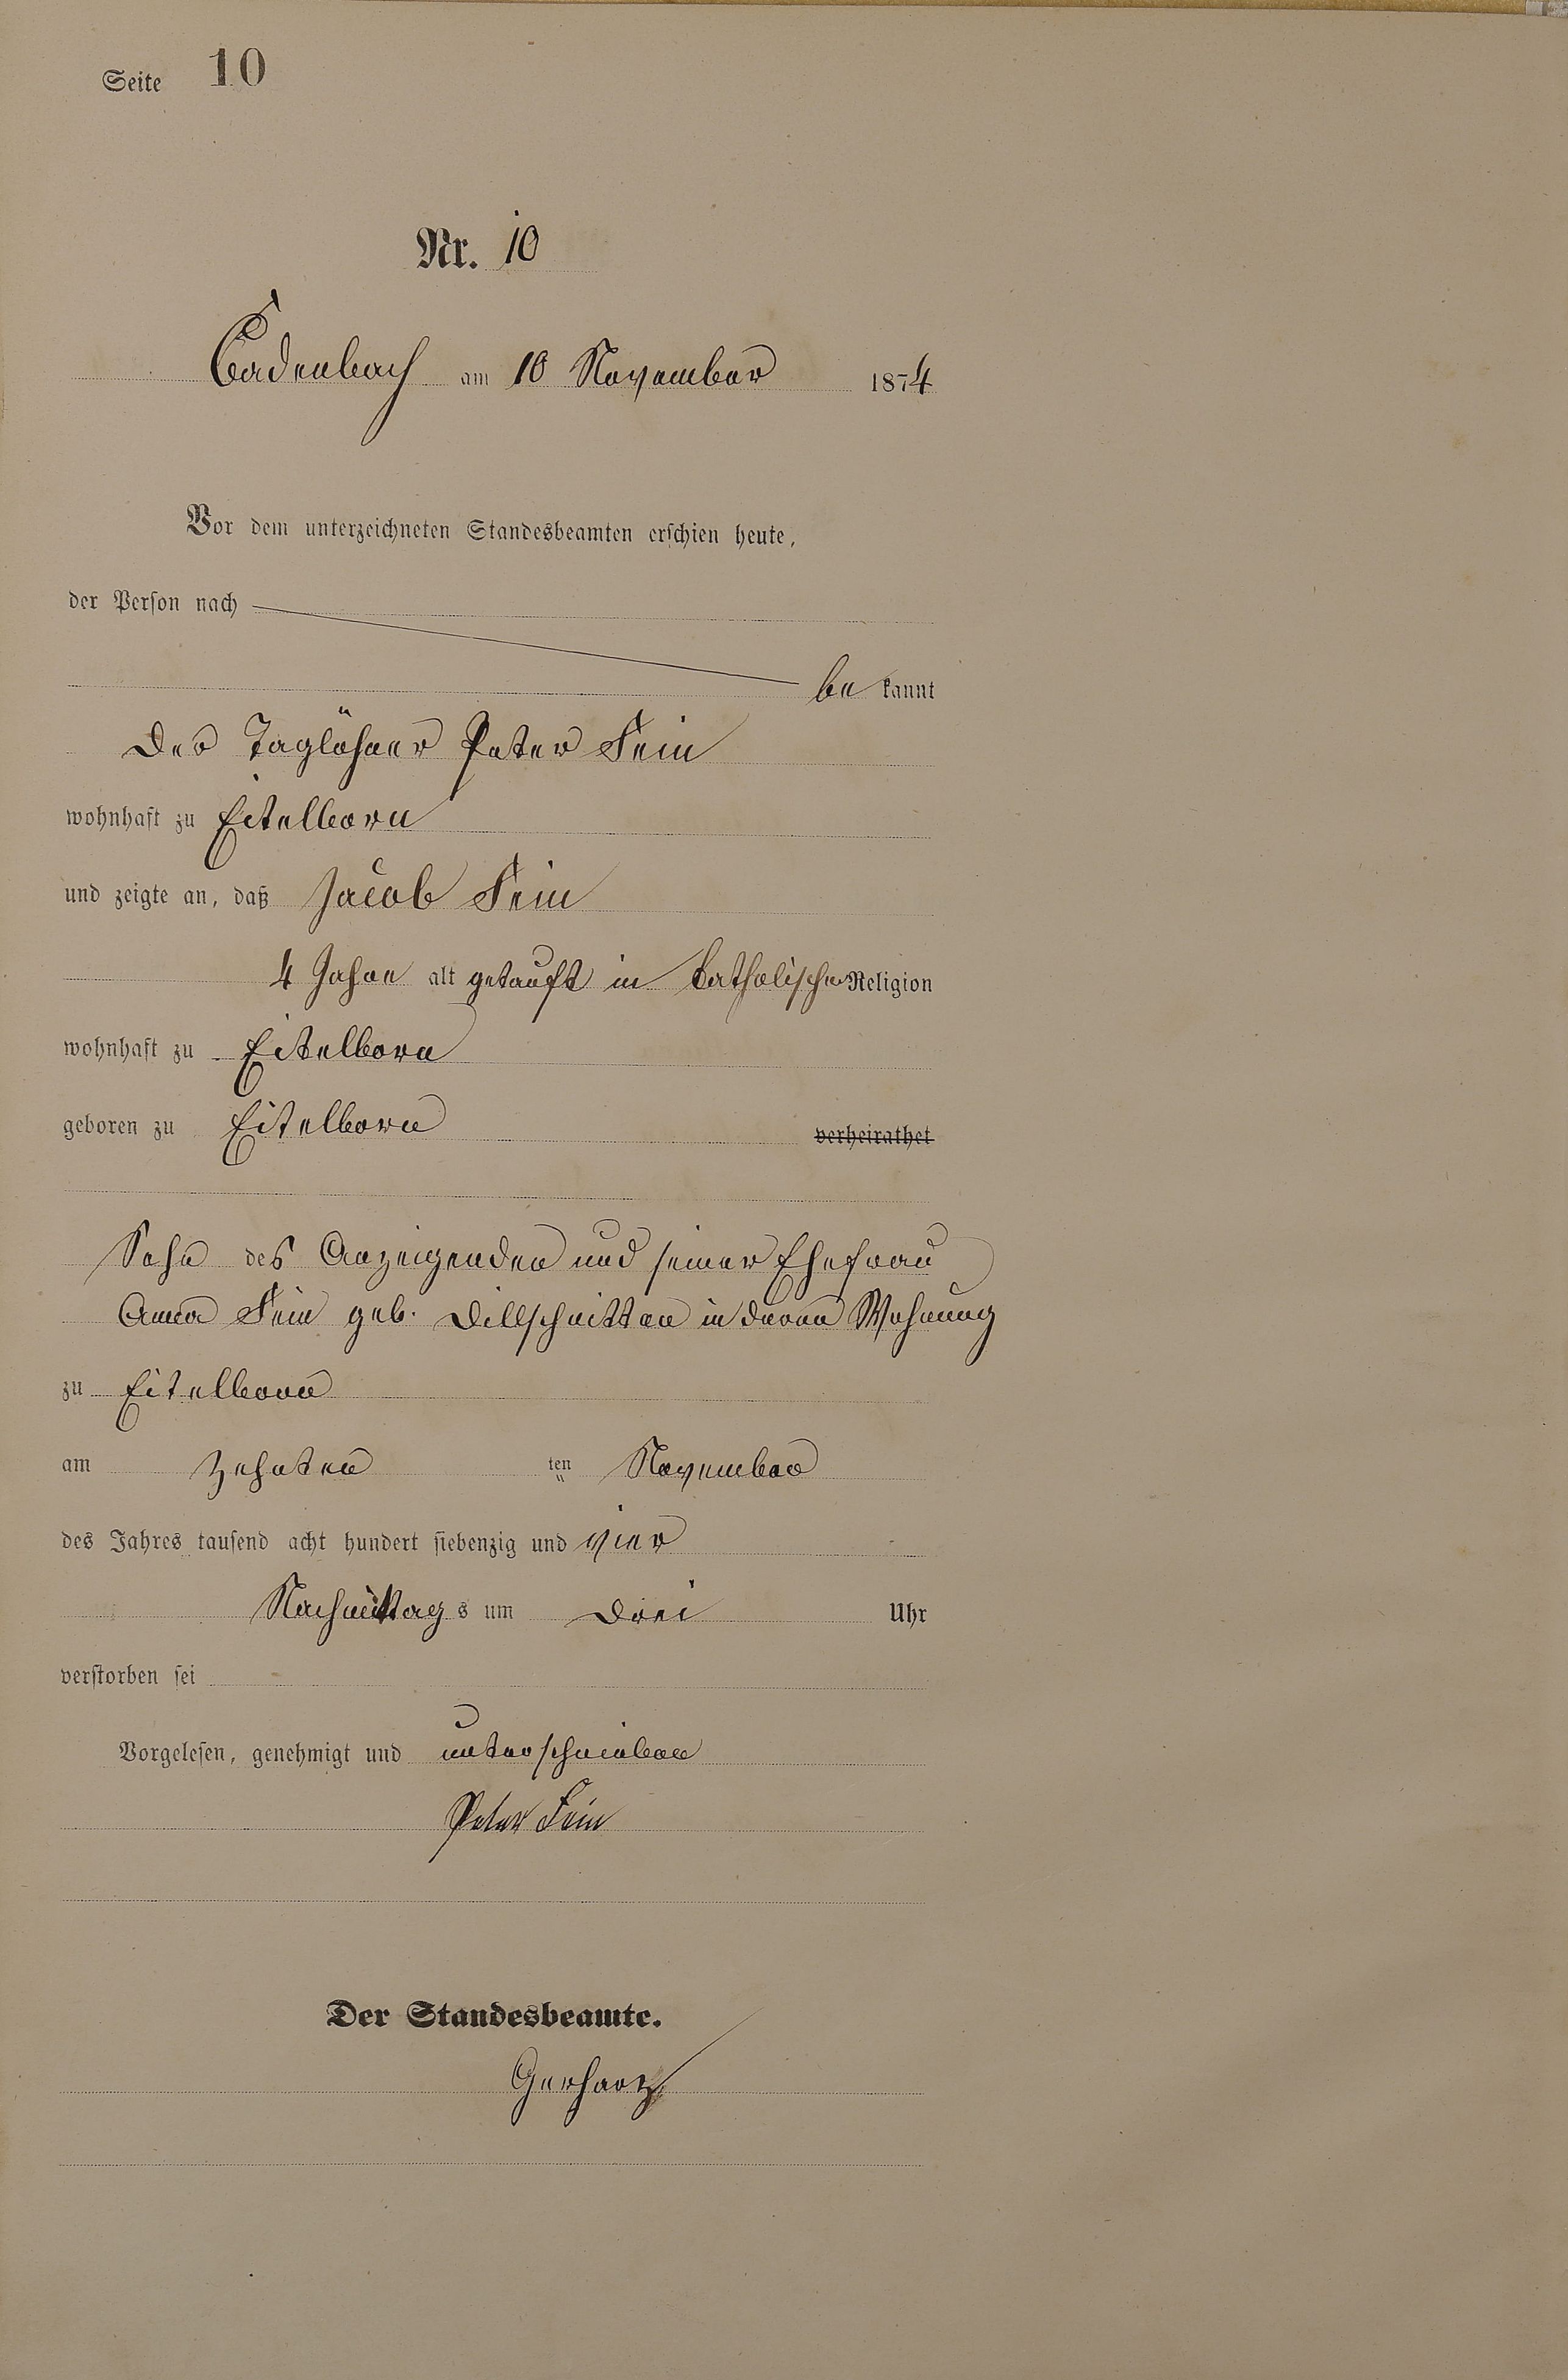 Seite 10
Nr. 10
Cadenbach am 10 November 1874
Vor dem unterzeichneten Standesbeamten erschien heute,
der Person nach
be kannt
Der Taglöhner Peter Fein
wohnhaft zu Eitelborn
und zeigte an, daß Jacob Fein
4 Jahre alt getauft in katholischer Religion
wohnhaft zu Eitelborn
geboren zu Eitelborn verheirathet
Sohn des Anzeigenden und seiner Ehefrau
Anna Fein geb. Dillschnitter in deren Wohnung
zu Eitelborn
am zehnten ten November
des Jahres tausend acht hundert siebenzig und vier
Nachmittag s um drei Uhr
verstorben sei
Vorgelesen, genehmigt und unterschrieben
Peter Fein
Der Standesbeamte.
Gerharz